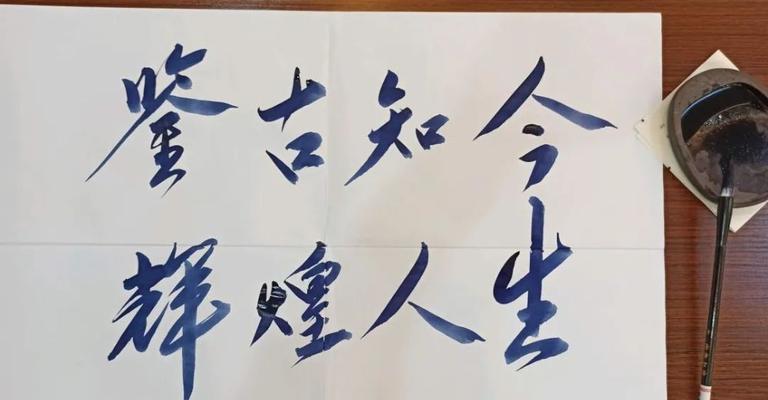 鉴古知今
辉煌人生